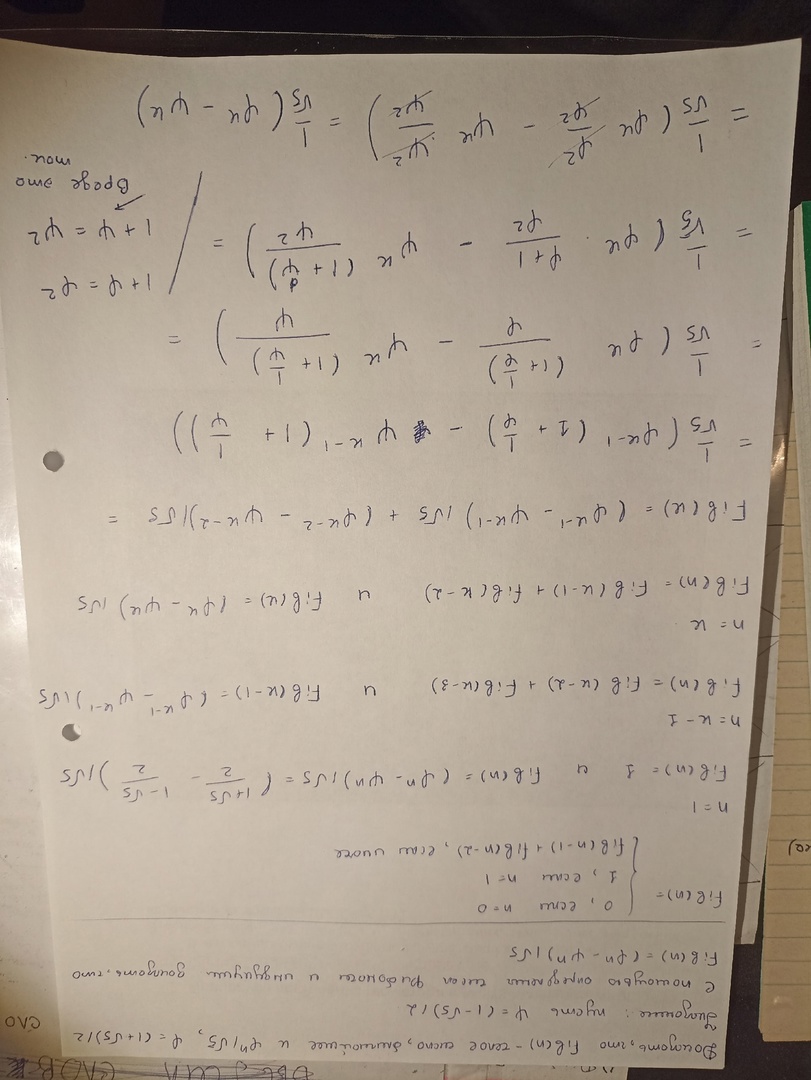 СЛО
Доказать, что Fib(n) - целое число, ближайшее к φⁿ/√5, φ = (1+√5)/2
Указание: пусть ψ = (1-√5)/2
С помощью определения чисел Фибоначчи и индукции доказать, что
Fib(n) = (φⁿ - ψⁿ)/√5
Fib(n) = { 0, если n = 0
1, если n = 1
fib(n-1) + fib(n-2), если иначе
n = 1
Fib(n) = 1 и Fib(n) = (φⁿ - ψⁿ)/√5 = ( (1+√5)/2 - (1-√5)/2 )/√5
n = k - 1
Fib(n) = Fib(k-2) + Fib(k-3) и Fib(k-1) = (φ^(k-1) - ψ^(k-1))/√5
n = k
Fib(n) = Fib(k-1) + fib(k-2) и Fib(k) = (φ^k - ψ^k)/√5
Fib(k) = (φ^(k-1) - ψ^(k-1))/√5 + (φ^(k-2) - ψ^(k-2))/√5 =
= 1/√5 (φ^(k-1) (1 + 1/φ) - ψ^(k-1) (1 + 1/ψ))
= 1/√5 (φ^k (1+1/φ)/φ - ψ^k (1+1/ψ)/ψ) =
= 1/√5 (φ^k · (φ+1)/φ² - ψ^k (1+ψ)/ψ²) = / 1+φ = φ²
1+ψ = ψ²
Вроде это
так.
= 1/√5 (φ^k φ²/φ² - ψ^k · ψ²/ψ²) = 1/√5 (φ^k - ψ^k)